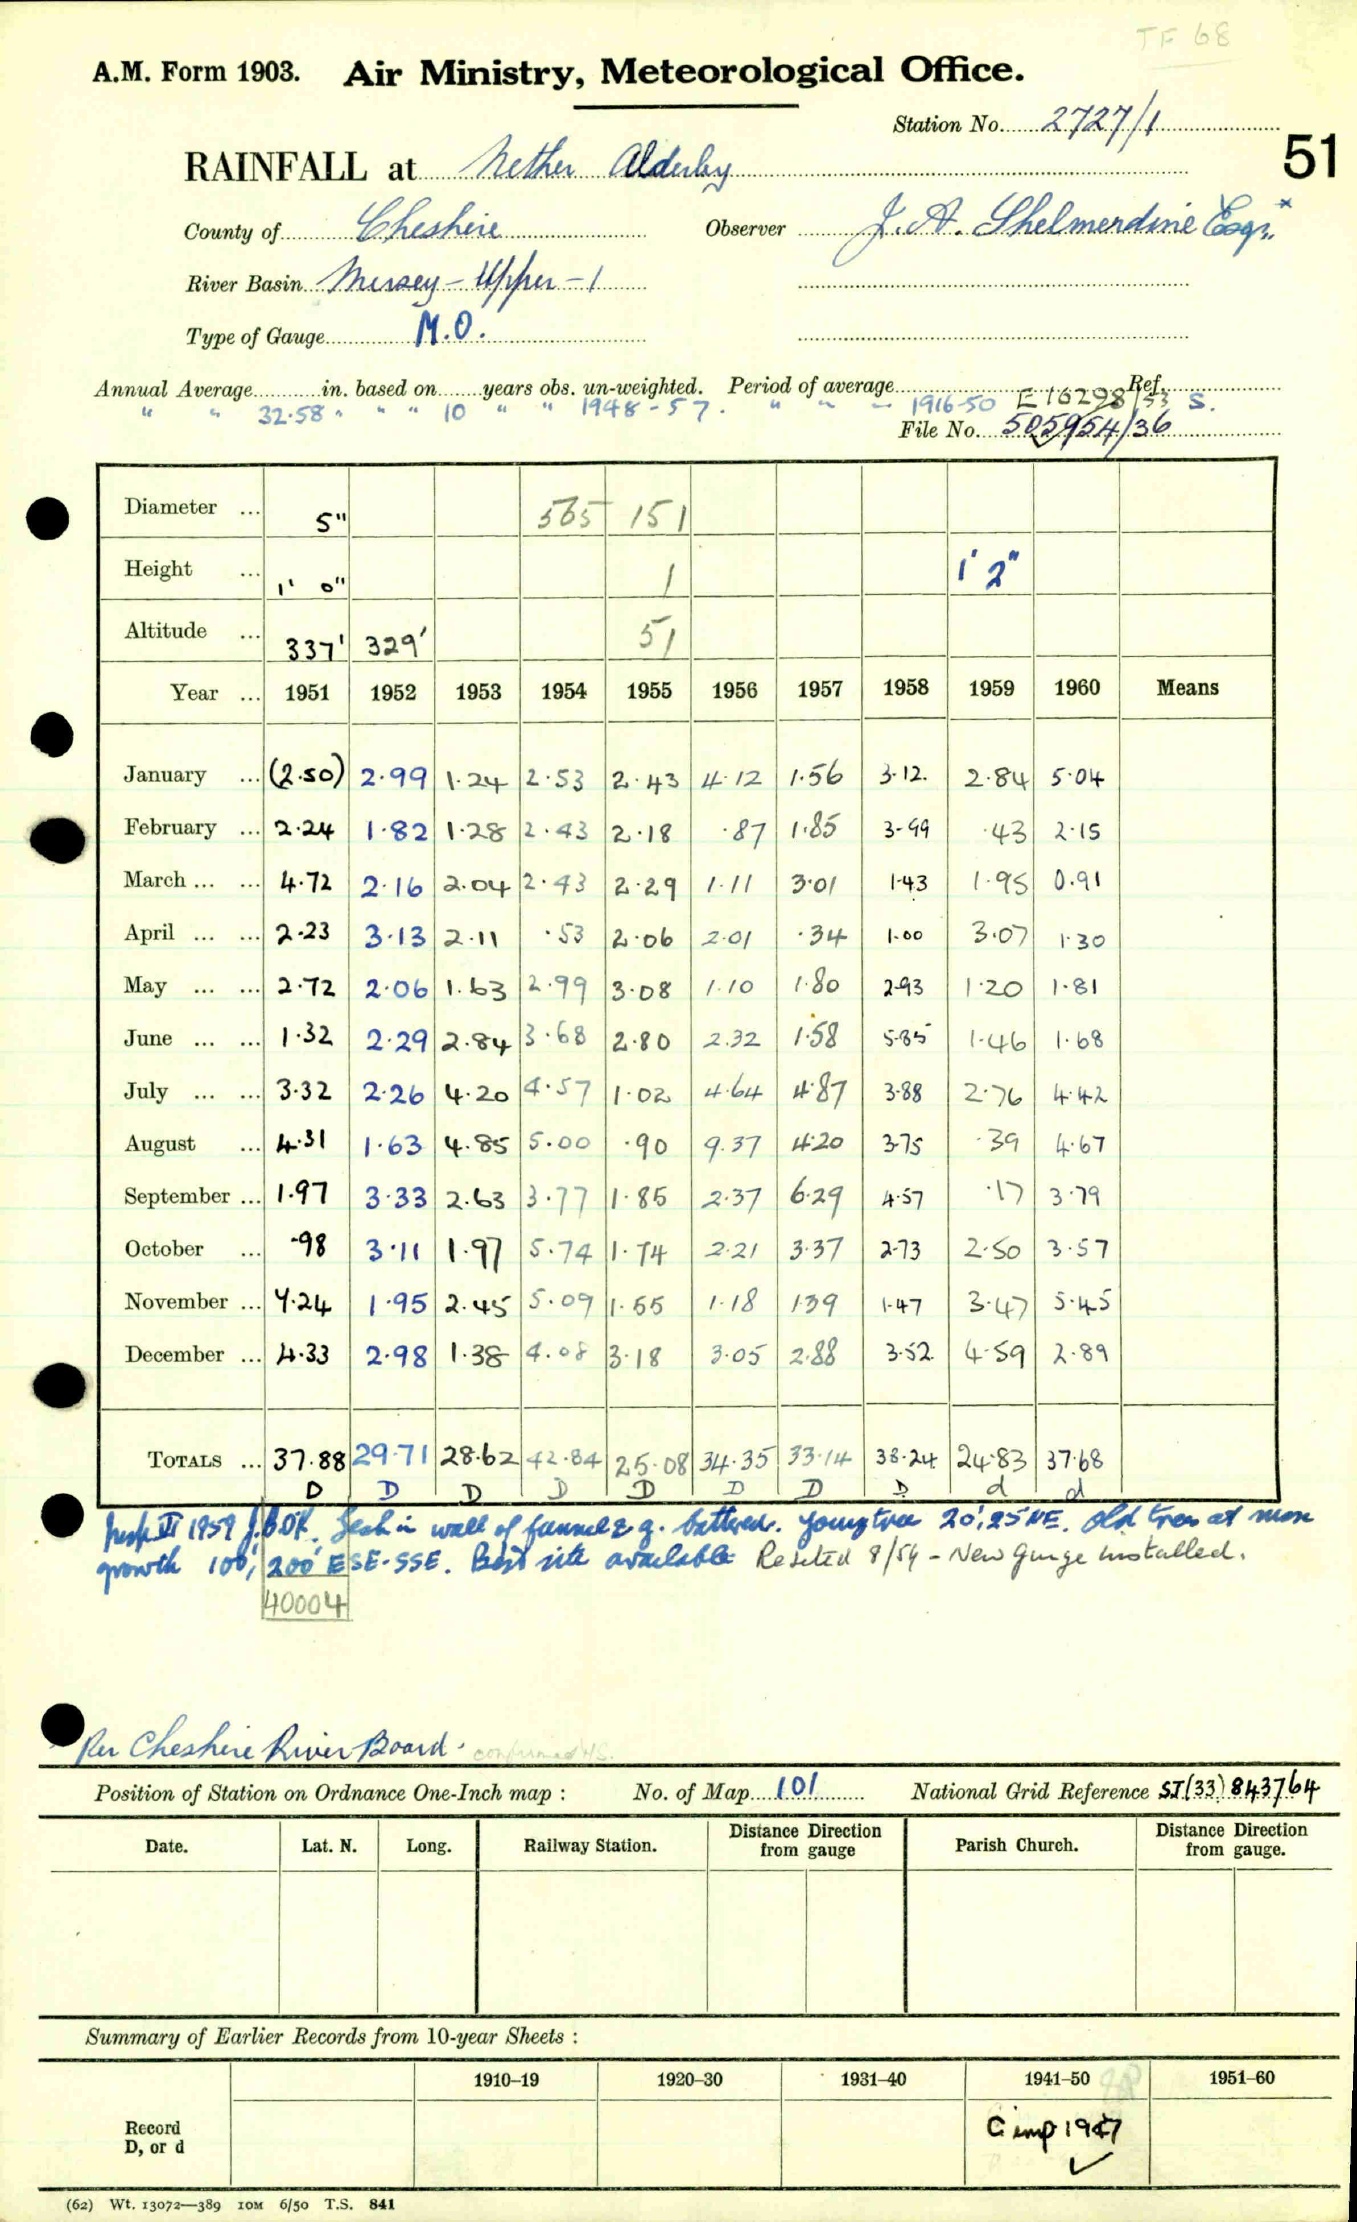 TF 68
A.M. Form 1903. Air Ministry, Meteorological Office.
Station No. 2727/1
51
RAINFALL at Nether Alderley
County of Cheshire Observer J. A. Shelmerdine Esqr.*
River Basin Mersey - Upper - 1
Type of Gauge M.O.
Annual Average in. based on years obs. un-weighted. Period of average Ref.
" " 32.58 " " " 10 " " 1948-57. " " - 1916-50 E16298/53 S.
File No. 505954/36
Diameter ... 5" 565 151
Height ... 1' 0" 1 1' 2"
Altitude ... 337' 329' 51
Year ... 1951 1952 1953 1954 1955 1956 1957 1958 1959 1960 Means
January ... (2.50) 2.99 1.24 2.53 2.43 4.12 1.56 3.12. 2.84 5.04
February ... 2.24 1.82 1.28 2.43 2.18 .87 1.85 3.99 .43 2.15
March ... ... 4.72 2.16 2.04 2.43 2.29 1.11 3.01 1.43 1.95 0.91
April ... ... 2.23 3.13 2.11 .53 2.06 2.01 .34 1.00 3.07 1.30
May ... ... 2.72 2.06 1.63 2.99 3.08 1.10 1.80 2.93 1.20 1.81
June ... ... 1.32 2.29 2.84 3.68 2.80 2.32 1.58 5.85 1.46 1.68
July ... ... 3.32 2.26 4.20 4.57 1.02 4.64 4.87 3.88 2.76 4.42
August ... 4.31 1.63 4.85 5.00 .90 9.37 4.20 3.75 .39 4.67
September ... 1.97 3.33 2.63 3.77 1.85 2.37 6.29 4.57 .17 3.79
October ... .98 3.11 1.97 5.74 1.74 2.21 3.37 2.73 2.50 3.57
November ... 7.24 1.95 2.45 5.09 1.55 1.18 1.39 1.47 3.47 5.45
December ... 4.33 2.98 1.38 4.08 3.18 3.05 2.88 3.52. 4.59 2.89
TOTALS ... 37.88 29.71 28.62 42.84 25.08 34.35 33.14 38.24 24.83 37.68
D D D D D D D D d d
Insp. VI 1959 Leak in wall of funnel & g. battered. Young tree 20', 25' NE. Old trees at more
growth 100', 200' ESE-SSE. Best site available Resited 8/59 - New Gauge installed.
40004
Per Cheshire River Board. confirmed
Position of Station on Ordnance One-Inch map : No. of Map 101 National Grid Reference SJ(33) 843764
Date. Lat. N. Long. Railway Station. Distance from Direction gauge Parish Church. Distance from Direction gauge.
Summary of Earlier Records from 10-year Sheets :
1910–19 1920–30 1931–40 1941–50 1951–60
Record D, or d C imp 1947
(62) Wt. 13072—389 10M 6/50 T.S. 841